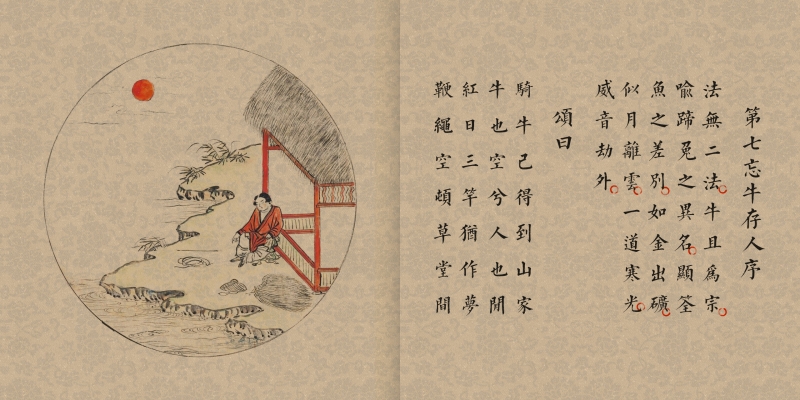 第七忘牛存人序
法無二法。牛且爲宗。
喻蹄兔之異名。顯筌
魚之差別。如金出礦。
似月離雲。一道寒光。
威音劫外。
頌曰
騎牛已得到山家
牛也空兮人也閑
紅日三竿猶作夢
鞭繩空頓草堂間